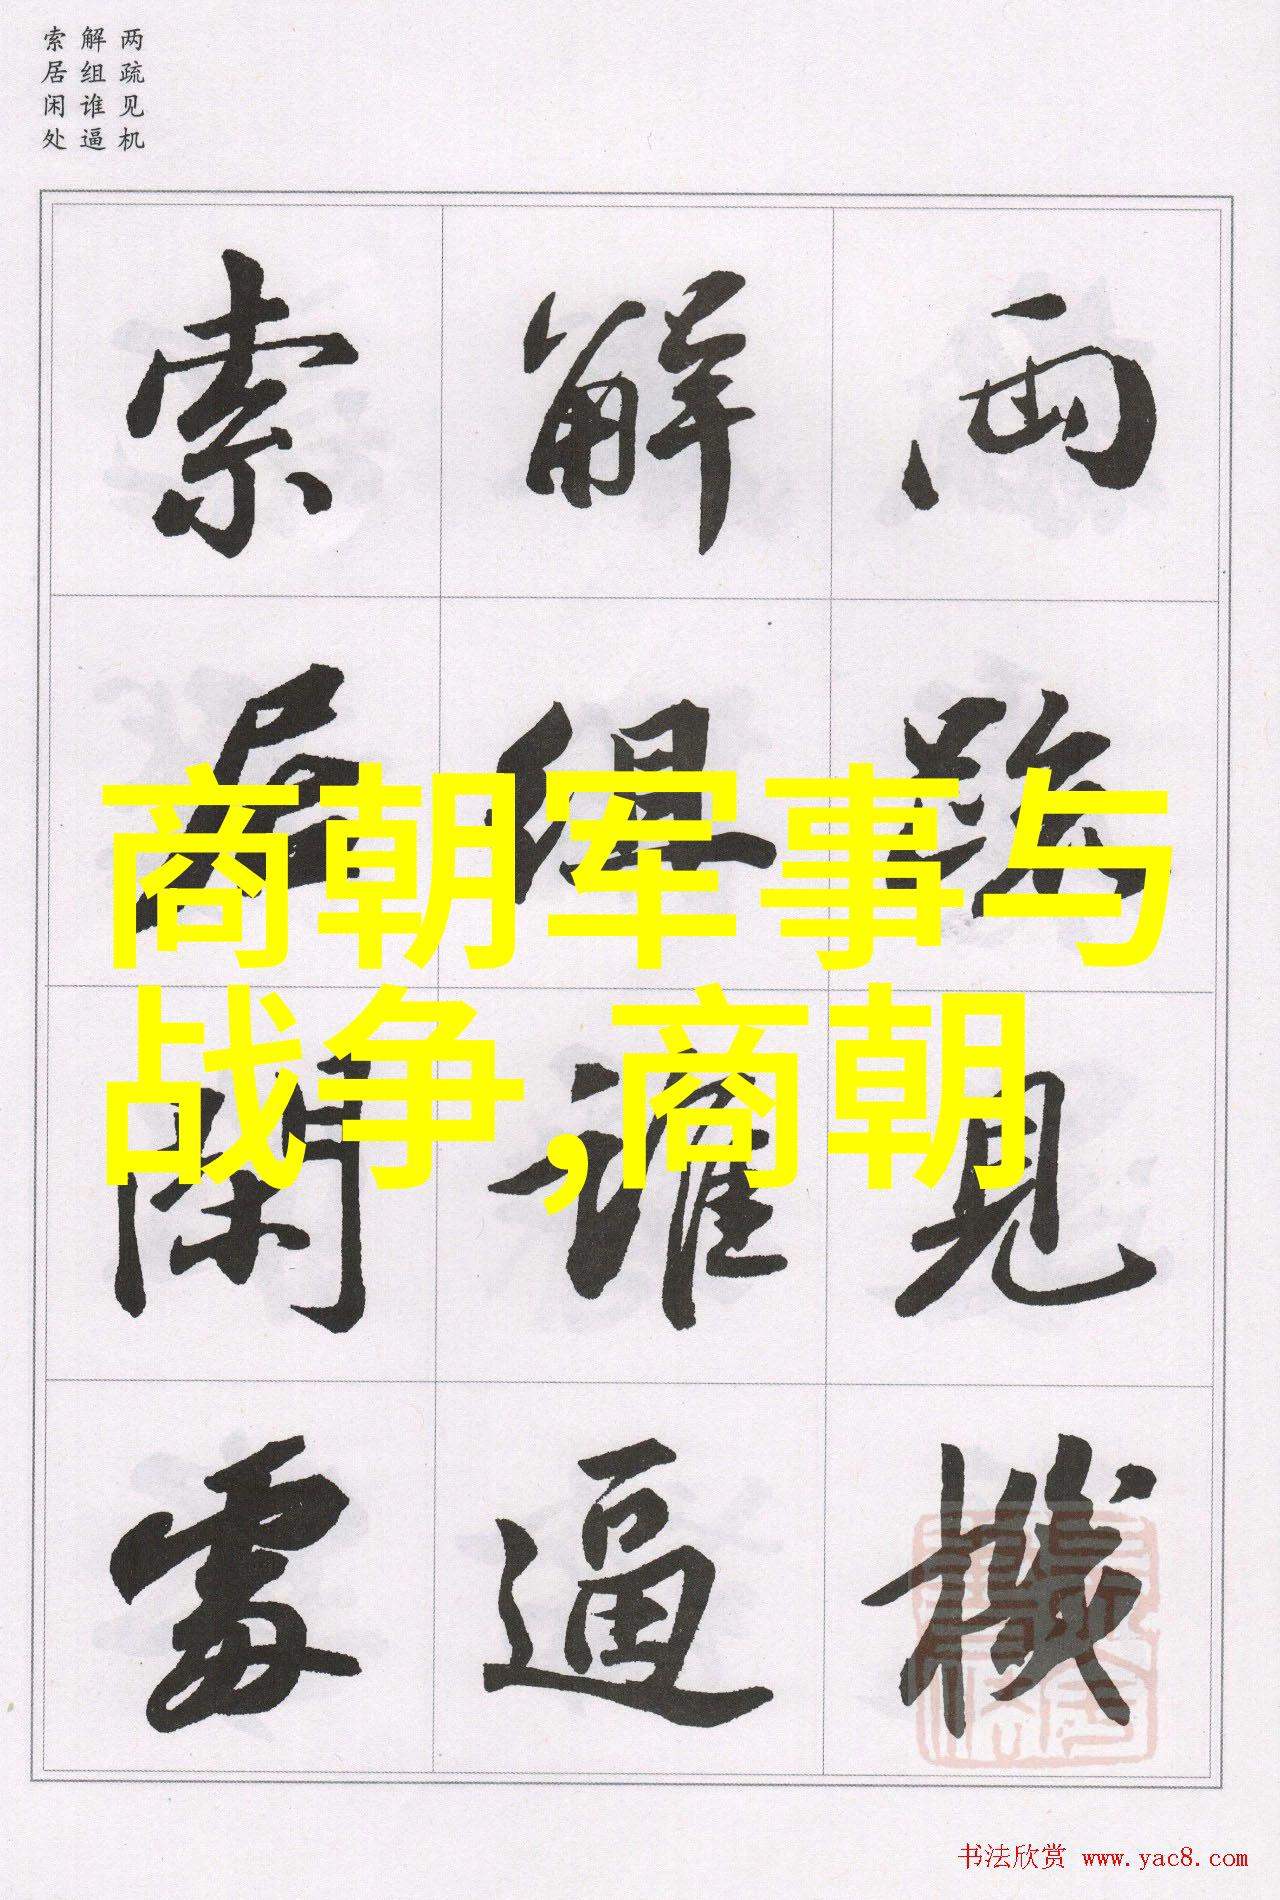 两疏见机
解组谁逼
索居闲处
兩踈見機
解組誰逼
索居閑處
商朝军事与
战争,商朝
书法欣赏 www.yac8.com